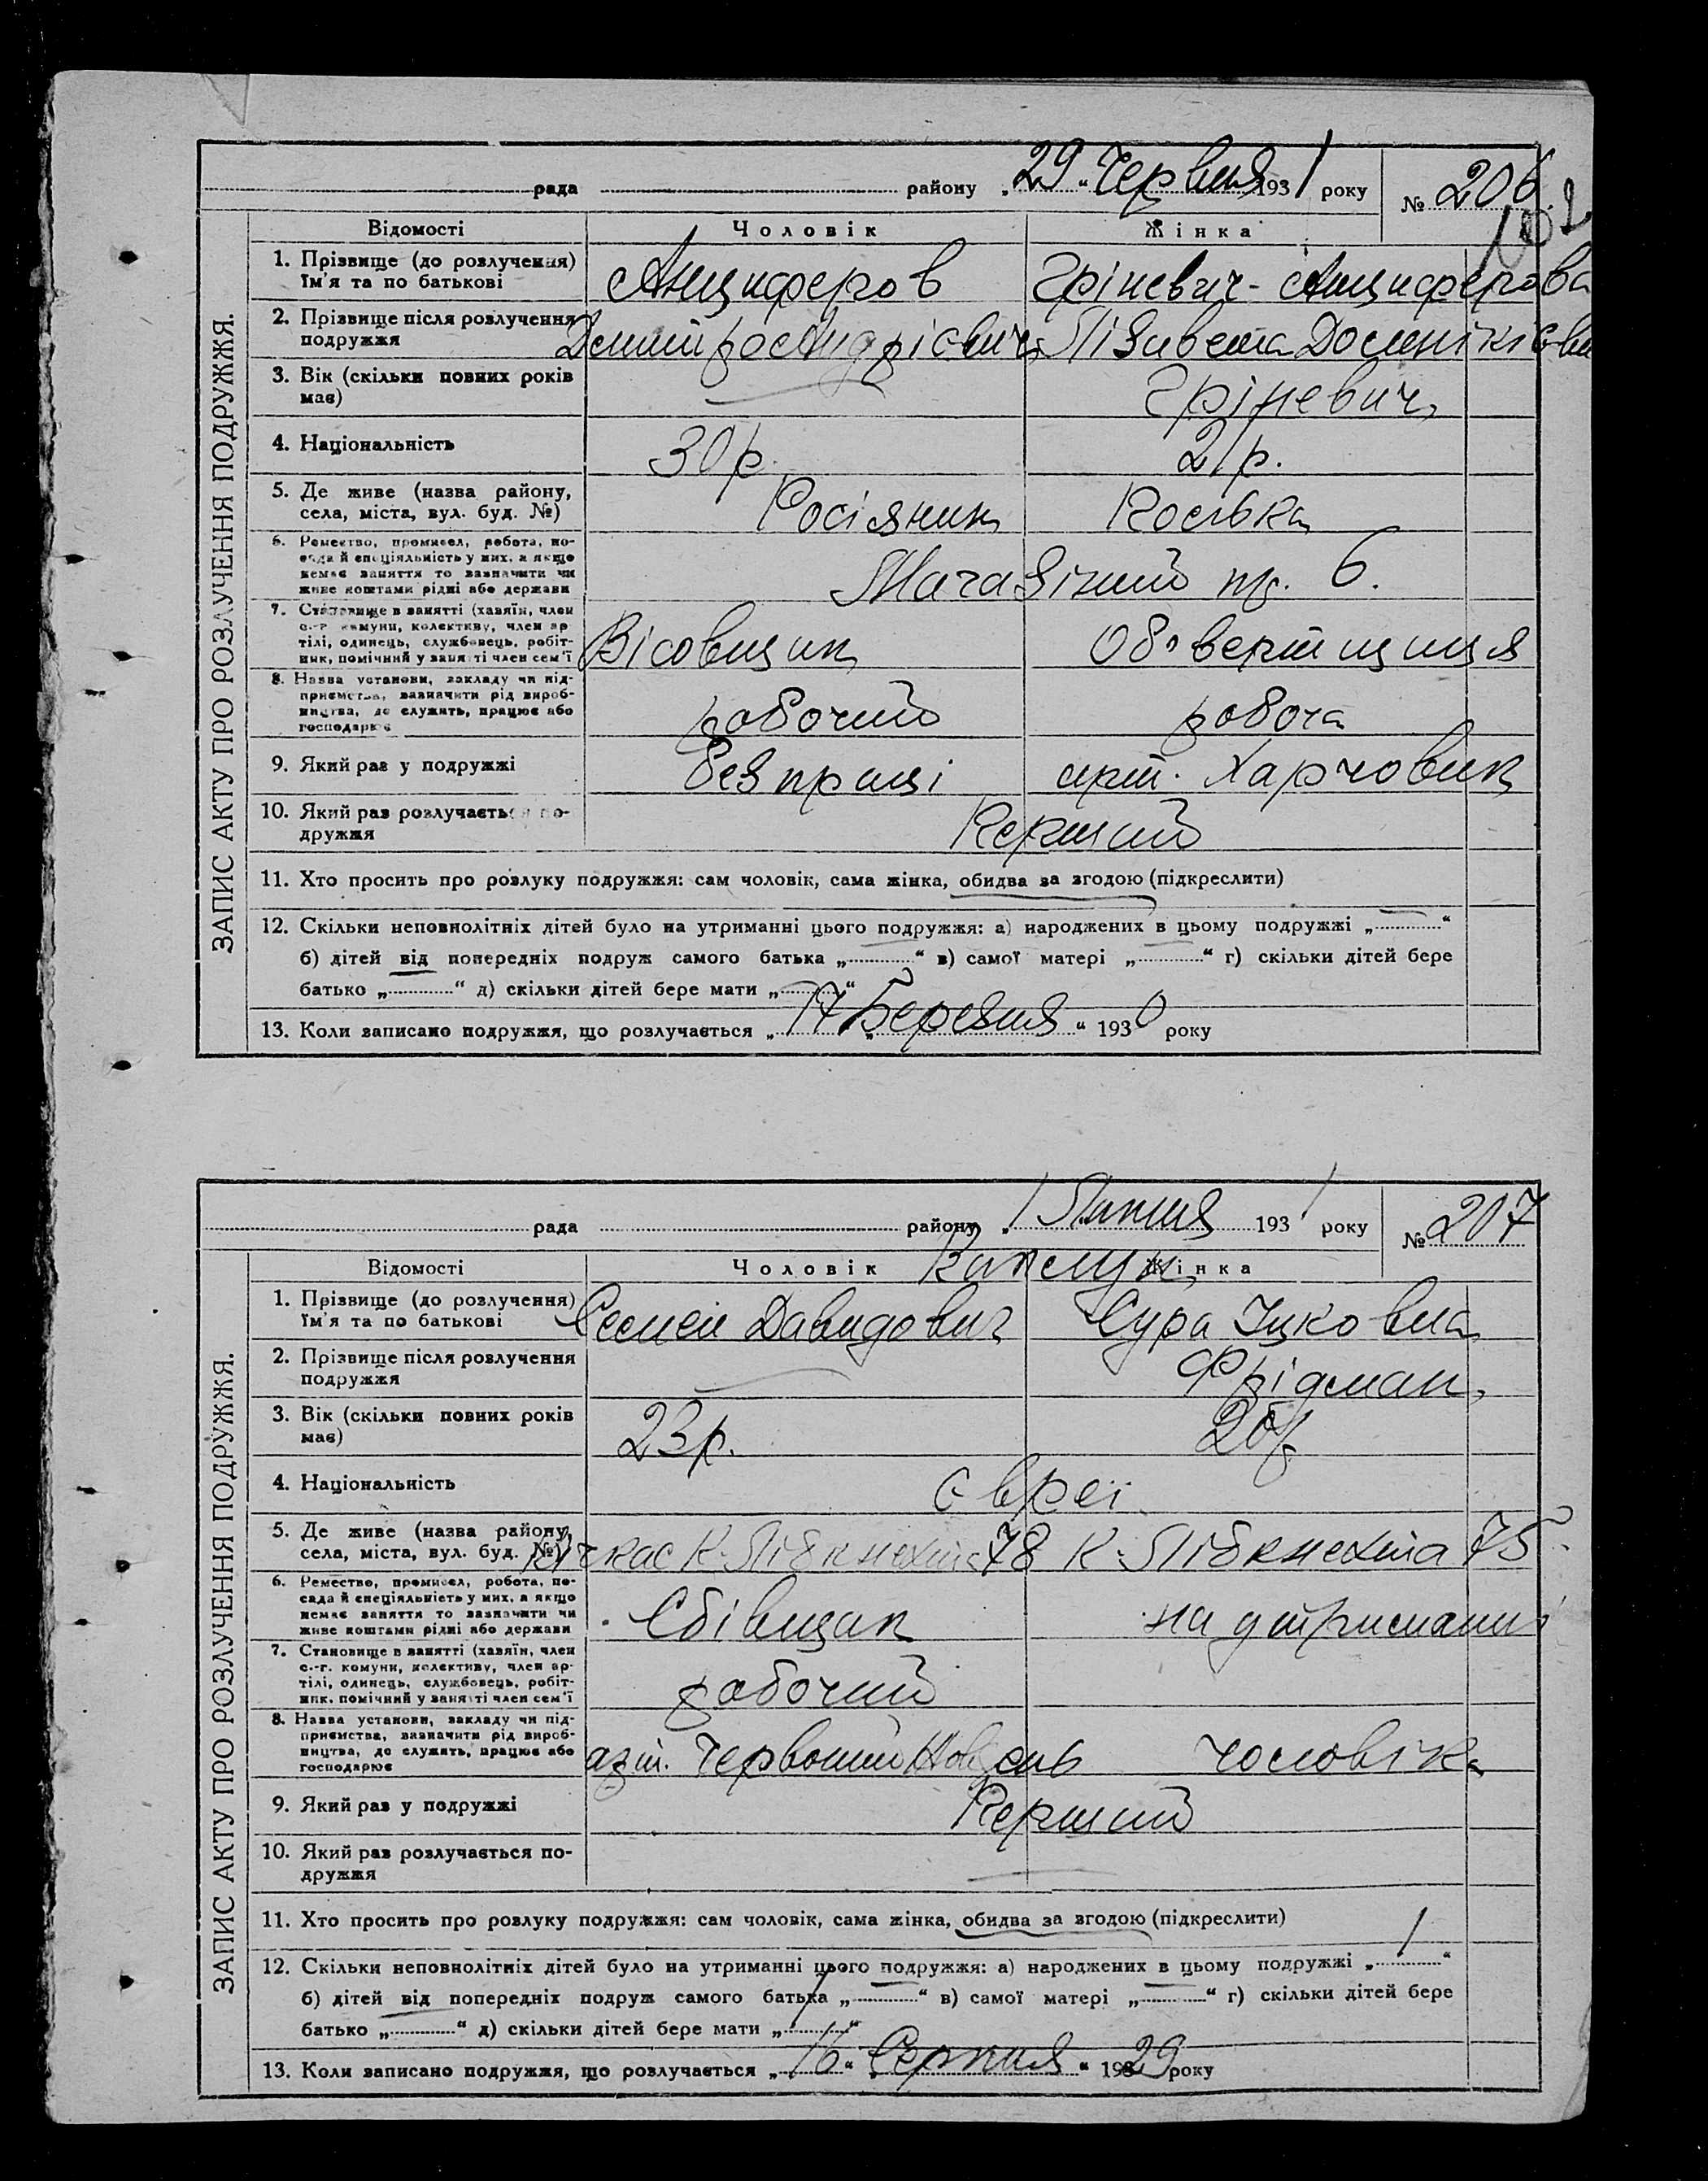 ЗАПИС АКТУ ПРО РОЗЛУЧЕННЯ ПОДРУЖЖЯ.
рада району „29“ Червня 1931 року № 206
102
Відомості Чоловік Жінка
1. Прізвище (до розлучення) Анциферов Гріневич-Анциферова
ім'я та по батькові
2. Прізвище після розлучення Дмитро Андрієвич Лізавета Доменіківна
подружжя
3. Вік (скільки повних років Гріневич
має)
4. Національність 30 р. 21 р.
5. Де живе (назва району, Росіянин
села, міста, вул. буд. №)
6. Ремество, промисел, робота, по-
сада й спеціяльність у них, а якщо
немає заняття то зазначити чи 6.
живе коштами рідні або держави
7. Становище в занятті (хазяїн, член
с.-г. комуни, колективу, член ар-
тілі, одинець, службовець, робіт- Вісовщик
ник, помічний у занятті член сем'ї
8. Назва установи, закладу чи під-
приємства, зазначити рід вироб-
ництва, де служить, працює або робочий робоча
господарює
9. Який раз у подружжі Без праці арт. Харчовик
10. Який раз розлучається по- Перший
дружжя
11. Хто просить про розлуку подружжя: сам чоловік, сама жінка, обидва за згодою (підкреслити)
12. Скільки неповнолітніх дітей було на утриманні цього подружжя: а) народжених в цьому подружжі „ “
б) дітей від попередніх подруж самого батька „ “ в) самої матері „ “ г) скільки дітей бере
батько „ “ д) скільки дітей бере мати „ “
13. Коли записано подружжя, що розлучається „17“ „Березня“ 1930 року
ЗАПИС АКТУ ПРО РОЗЛУЧЕННЯ ПОДРУЖЖЯ.
рада району „1 Липня 1931 року № 207
Відомості Чоловік Жінка
1. Прізвище (до розлучення) Семен Давидович Сура Іцковна
ім'я та по батькові
2. Прізвище після розлучення Фрідман
подружжя
3. Вік (скільки повних років 23 р. 20 р.
має)
4. Національність євреї
5. Де живе (назва району, Кічкас К. Лібкнехта 78 К. Лібкнехта 75
села, міста, вул. буд. №)
6. Ремество, промисел, робота, по-
сада й спеціяльність у них, а якщо
немає заняття то зазначити чи на утриманні
живе коштами рідні або держави
7. Становище в занятті (хазяїн, член
с.-г. комуни, колективу, член ар-
тілі, одинець, службовець, робіт- робочий
ник, помічний у занятті член сем'ї
8. Назва установи, закладу чи під-
приємства, зазначити рід вироб-
ництва, де служить, працює або арт. Червоний чоловіка
господарює
9. Який раз у подружжі Перший
10. Який раз розлучається по-
дружжя
11. Хто просить про розлуку подружжя: сам чоловік, сама жінка, обидва за згодою (підкреслити)
12. Скільки неповнолітніх дітей було на утриманні цього подружжя: а) народжених в цьому подружжі „1“
б) дітей від попередніх подруж самого батька „ “ в) самої матері „ “ г) скільки дітей бере
батько „ “ д) скільки дітей бере мати „1“
13. Коли записано подружжя, що розлучається „16“ „Серпня“ 1929 року